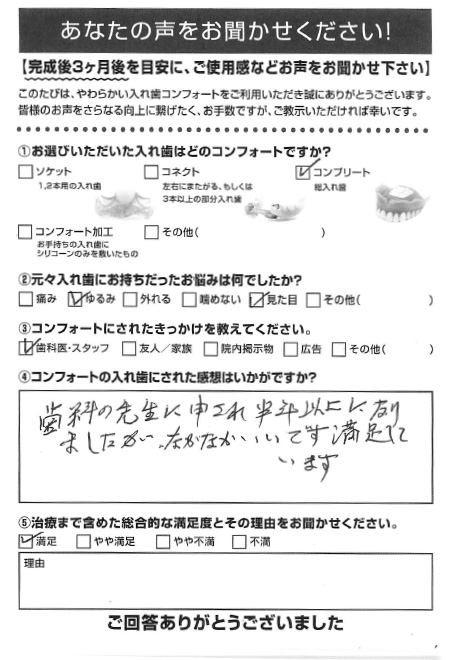 あなたの声をお聞かせください!
【完成後3ヶ月後を目安に、ご使用感などお声をお聞かせ下さい】
このたびは、やわらかい入れ歯コンフォートをご利用いただき誠にありがとうございます。
皆様のお声をさらなる向上に繋げたく、お手数ですが、ご教示いただければ幸いです。
①お選びいただいた入れ歯はどのコンフォートですか?
ソケット コネクト コンプリート
1,2本用の入れ歯 左右にまたがる、もしくは 総入れ歯
3本以上の部分入れ歯
コンフォート加工 その他( )
お手持ちの入れ歯に
シリコーンのみを敷いたもの
②元々入れ歯にお持ちだったお悩みは何でしたか?
痛み ゆるみ 外れる 噛めない 見た目 その他( )
③コンフォートにされたきっかけを教えてください。
歯科医・スタッフ 友人/家族 院内掲示物 広告 その他( )
④コンフォートの入れ歯にされた感想はいかがですか?
歯科の先生に申され半年以上になり
ましたが、なかなかいいです満足して
います
⑤治療まで含めた総合的な満足度とその理由をお聞かせください。
満足 やや満足 やや不満 不満
理由
ご回答ありがとうございました